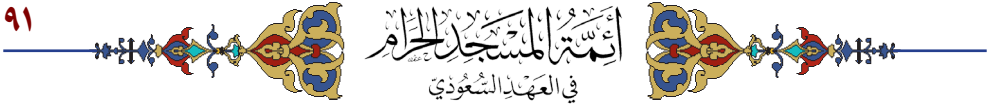 ٩١
أَئِمَّةُ المَسْجِدِ الحَرَامِ
في العَهْدِ السُّعُودِيِّ